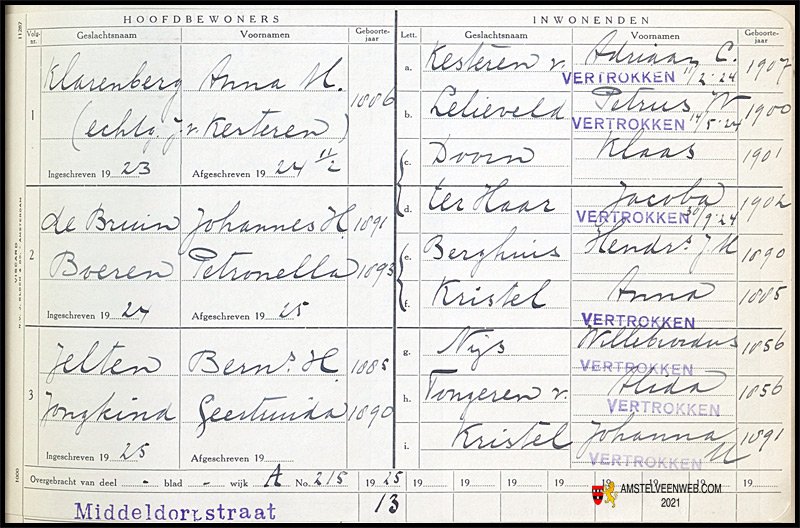 HOOFDBEWONERS
Volg-nr.
Geslachtsnaam
Voornamen
Geboorte-jaar
1
Klarenberg Anna M. 1886
(echtg. J. v. Kesteren)
Ingeschreven 19 23 Afgeschreven 19 24 11/2
2
de Bruin Johannes H. 1891
Boeren Petronella 1893
Ingeschreven 19 24 Afgeschreven 19 25
3
Jelten Berns. H. 1885
Jongkind Geertruida 1890
Ingeschreven 19 25 Afgeschreven 19
INWONENDEN
Lett.
Geslachtsnaam
Voornamen
Geboorte-jaar
a. Kesteren v. Adriaan C. 1907
VERTROKKEN 11/2-24
b. Lelieveld Petrus W 1900
VERTROKKEN 14/5-24
c. Doorn Klaas 1901
d. ter Haar Jacoba 1902
VERTROKKEN 30/9-24
e. Berghuis Hendrs J M 1890
f. Kristel Anna 1885
VERTROKKEN
g. Nijs Willebrordus 1856
VERTROKKEN
h. Tongeren v. Alida 1856
VERTROKKEN
i. Kristel Johanna M 1891
VERTROKKEN
Overgebracht van deel - blad - wijk A No. 215 19 25 19 19 19 19 19 19 19 19
Middeldorpstraat 13
11287
N.V. J. BLOCH & ZN., AMSTERDAM
1000
AMSTELVEENWEB.COM
2021